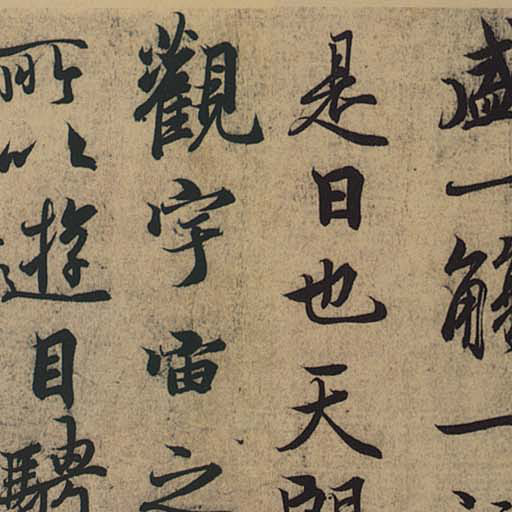 盛一觴一
是日也天朗
觀宇宙之
所以遊目騁